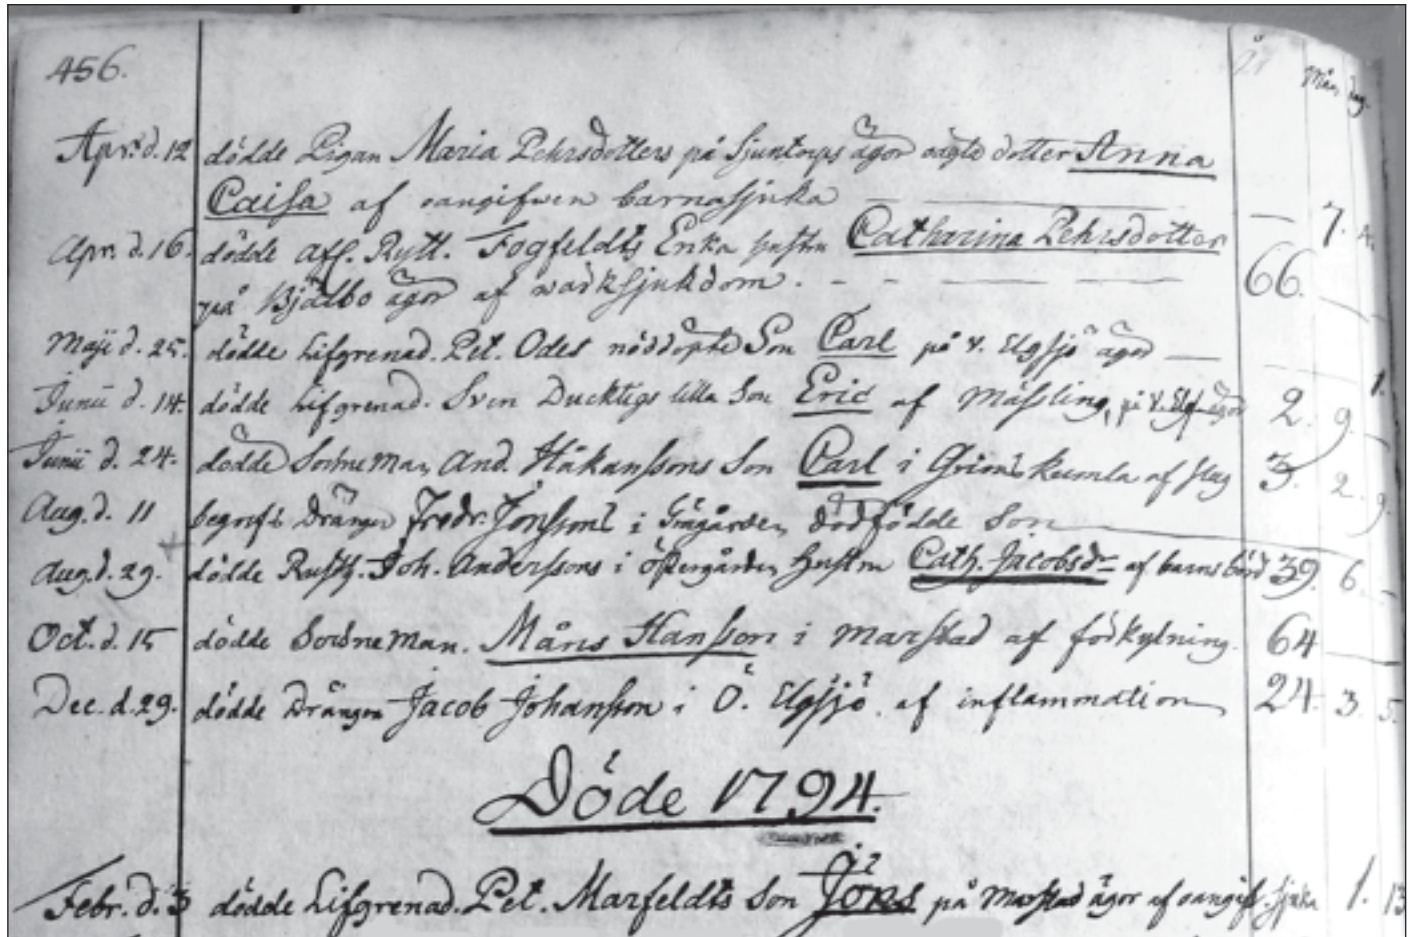 456.
År Mån. dag.
Apr. d. 12 dödde Pigan Maria Pehrsdotters på Sjuntorps ägor oägte dotter Anna
Caisa af oangifwen barnasjuka — 7.
Apr. d. 16. dödde afs. Rytt. Fogfeldts Enka hustru Catharina Pehrsdotter
på Bjälbo ägor af wärksjukdom. 66.
Maji d. 25. dödde Lifgrenad. Pet. Odes nöddöpte Son Carl på v. Elgsjö ägor — 1.
Junii d. 14. dödde Lifgrenad. Sven Ducktigs lilla Son Eric af Mässling, på V. Elgs. ägor 2. 9.
Junii d. 24. dödde Sockneman And. Håkanssons Son Carl i Kumla af slag 3. 2. 9.
Aug. d. 11 begrofs Drängen Fredr. Jonssons i Grågården dödfödde Son
Aug. d. 29. dödde Rusth. Joh. Anderssons i Östergården hustru Cath. Jacobsdr af barnsbörd 39. 6.
Oct. d. 15 dödde Sockneman. Måns Hansson i Marstad af förkylning. 64
Dec. d. 29. dödde Drängen Jacob Johansson i Ö. Elgsjö af inflammation 24. 3. 5.
Döde 1794.
Febr. d. 3 dödde Lifgrenad. Pet. Marfeldts Son Jöns på Marstad ägor af oangifv. sjuka 1. 13